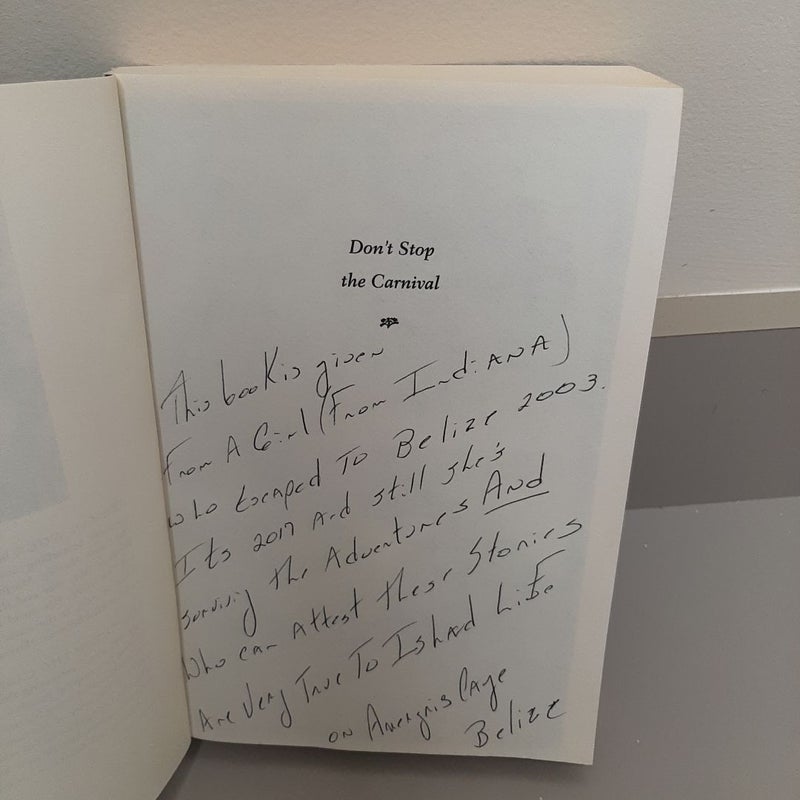 Don't Stop
the Carnival
This book is given
From A Girl (From IndiANA)
who Escaped To Belize 2003.
Its 2017 And still she's
surviving the Adventures And
Who can Attest these Stories
Are Very True To Island Life
on Amergris Caye
Belize